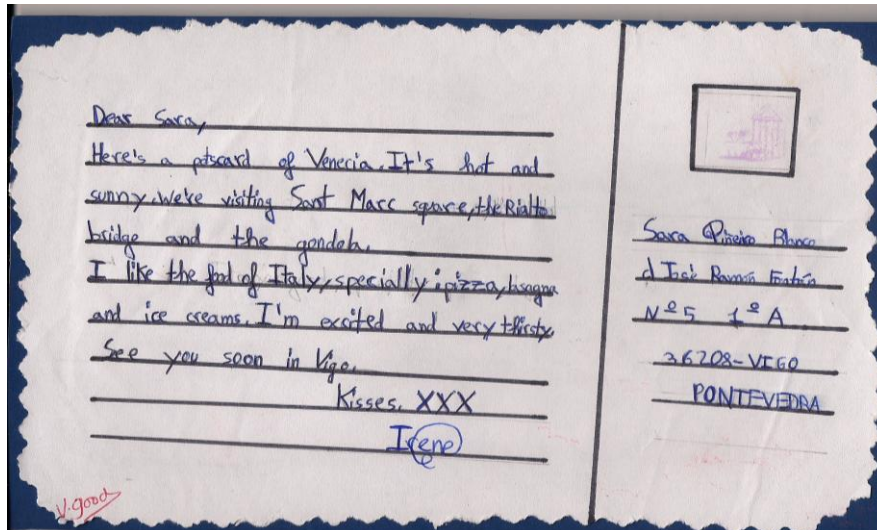 Dear Sara,
Here's a ptscard of Venecia. It's hot and
sunny. We're visiting Sant Marc square, the Rialto
bridge and the gondola.
I like the food of Italy, specially pizza, lasagna
and ice creams. I'm excited and very thirsty.
See you soon in Vigo.
Kisses. XXX
Irene
V. good
Sara Piñeiro Blanco
José Ramón
Nº 5 1º A
36208-VIGO
PONTEVEDRA